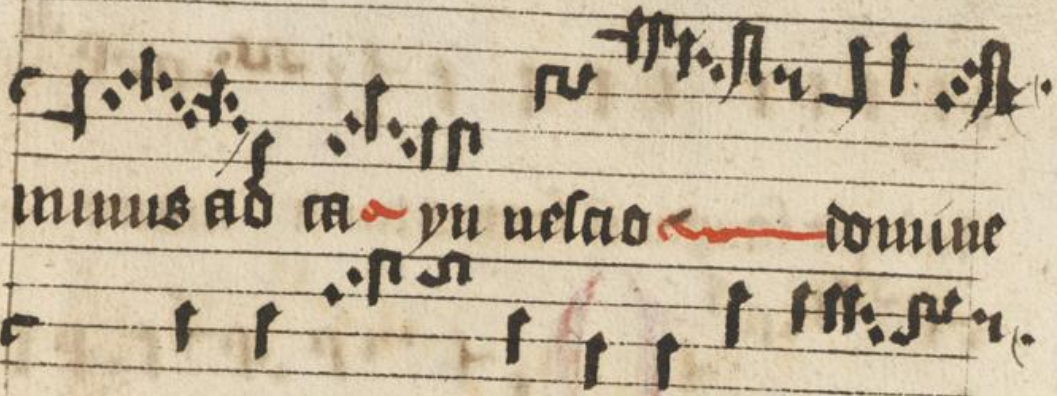 minus ad ca yn nescio domine